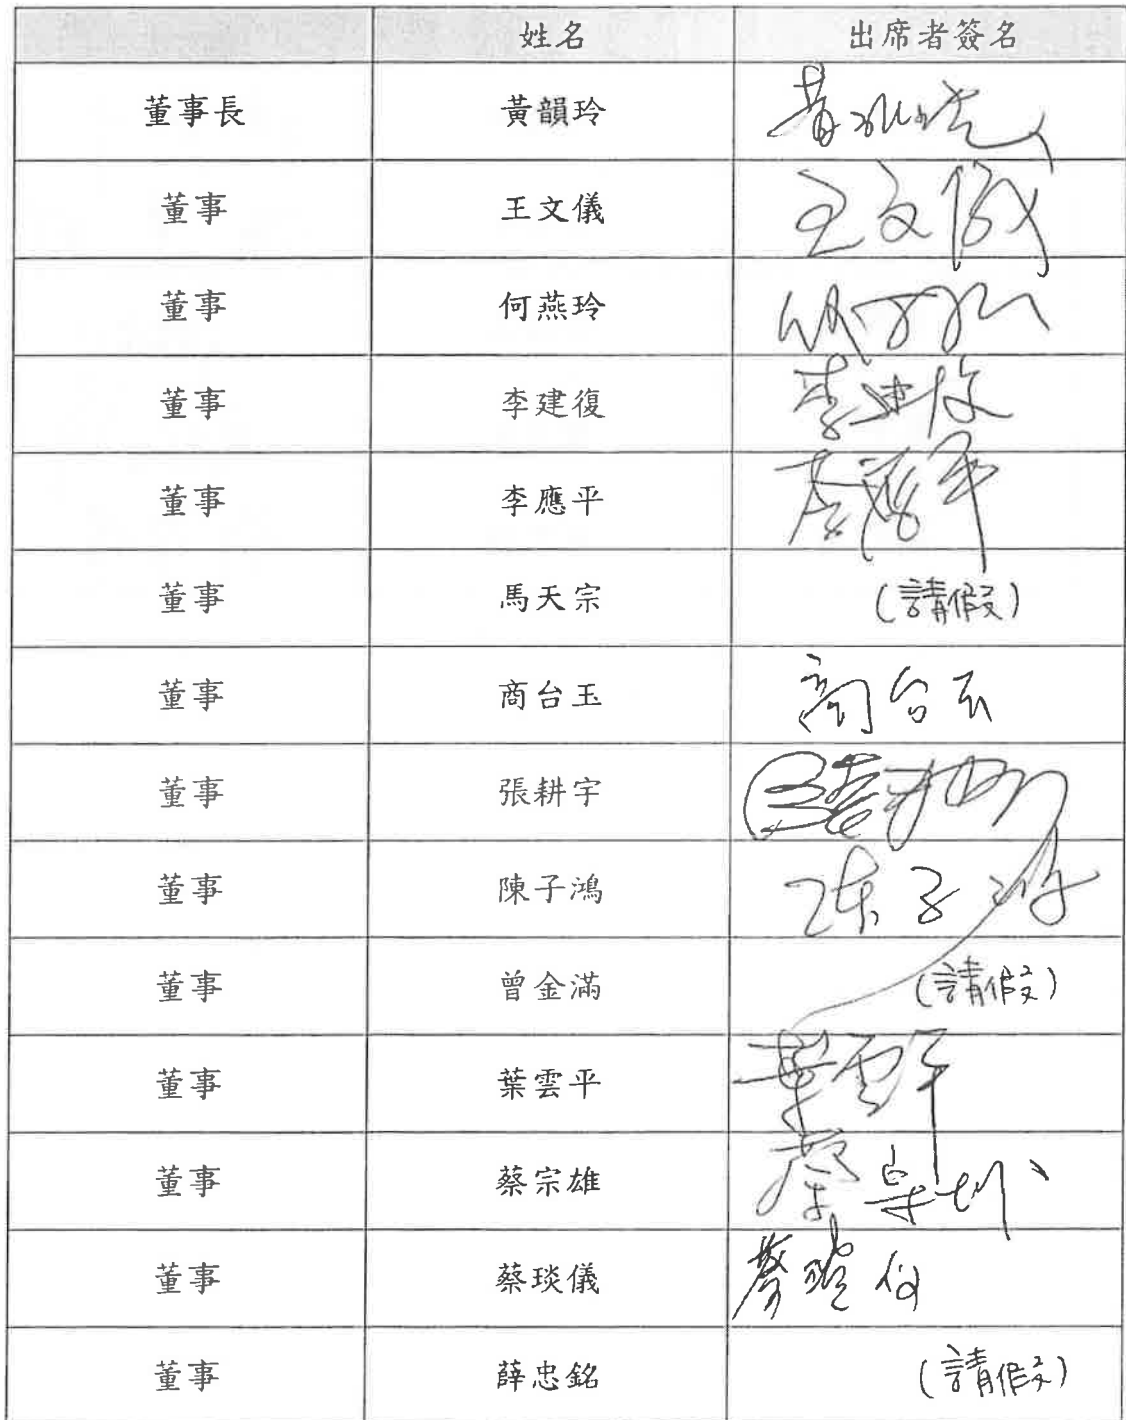 姓名 出席者簽名
董事長 黃韻玲
董事 王文儀 王文儀
董事 何燕玲
董事 李建復 李建復
董事 李應平 李應平
董事 馬天宗 (請假)
董事 商台玉 商台玉
董事 張耕宇
董事 陳子鴻 陳子鴻
董事 曾金滿 (請假)
董事 葉雲平 葉雲平
董事 蔡宗雄
董事 蔡琰儀
董事 薛忠銘 (請假)